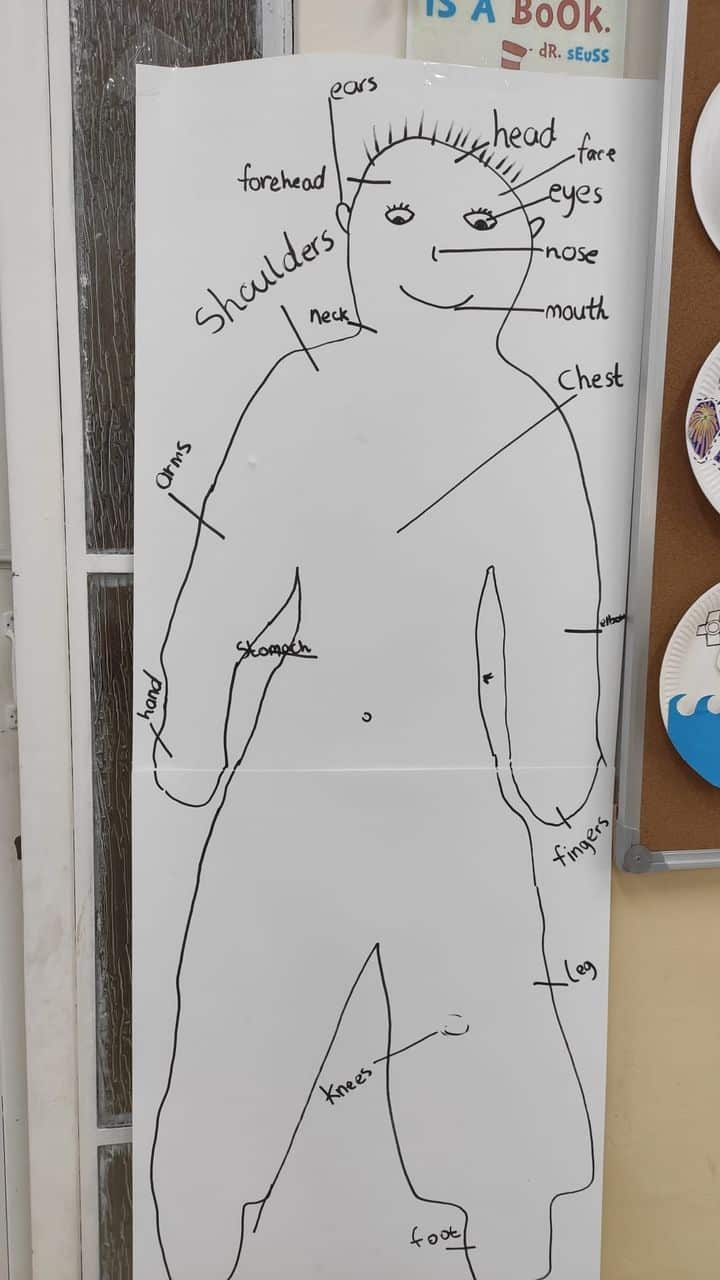 IS A BOOK.
- DR. SEUSS
ears
head
face
forehead
eyes
shoulders
nose
neck
mouth
Chest
arms
elbow
Stomach
hand
fingers
leg
knees
foot